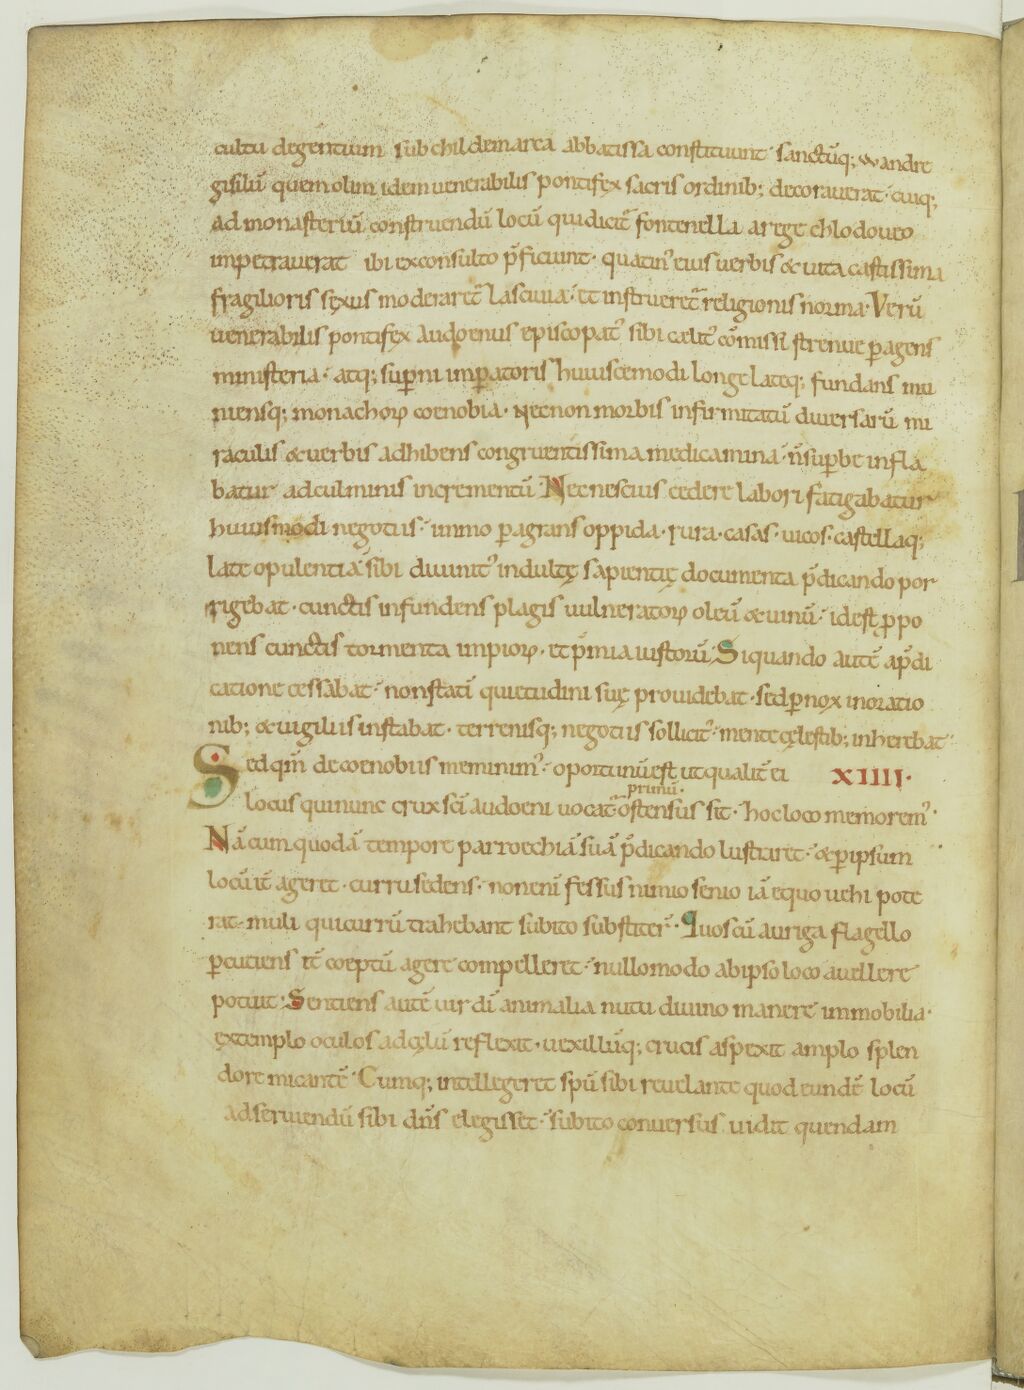 cultu degentium sub childemarca abbatissa constituunt· sanctūq; wandre
gisilū quem olim idem uenerabilis pontifex sacris ordinib; decorauerat· cuiq;
ad monasteriū construendū locū qui dicit̄ fontenella a rege chlodoueo
impetrauerat ibi ex consulto p̄ficiunt· quatin᷒ eius uerbis & uita castissima
fragilioris sexus moderaret̄ lasciuia· et instrueret̄ religionis norma· Verū
uenerabilis pontifex Audoenus episcopat᷒ sibi cælit᷒ cōmissi strenue ꝑagens
ministeria· atq; suꝑni imꝑatoris huiuscemodi longe lateq; fundans mu
niensq; monachoꝝ coenobia· necnon morbis infirmitatū diuersarū mi
raculis & uerbis adhibens congruentissima medicamina· n̄ suꝑbe infla
batur ad culminis incrementū· Nec nescius cedere labori fatigabatur
huiusmodi negotiis· immo ꝑagrans oppida· rura· casas· uicos· castellaq;
late opulentiā sibi diuinit᷒ indultę sapientię documenta p̄dicando por
rigebat· cunctis infundens plagis uulneratoꝝ oleū & uinū· id est ꝓpo
nens cunctis tormenta impioꝝ· et p̄mia iustorū· Siquando autē a p̄di
catione cessabat· non statī quietudini suę prouidebat· sed ꝑnox in oratio
nib; & uigiliis instabat· terrenisq; negotiis sollicit᷒· mente cęlestib; inherebat·
Sed qm̄ de coenobiis meminim᷒· oportunū est ut qualit̄ ei XIIII·
primū·
locus qui nunc crux sc̄i audoeni uocat̄ ostensus sit· hoc loco memorem᷒·
Nā cum quodā tempore parroechiā suā p̄dicando lustraret· & ꝑ ipsum
locū it̄ ageret· curru sedens· non enī fessus nimio senio iā equo uehi pote
rat· muli qui currū trahebant subito substiter̄· Quos cū auriga flagello
ꝑcutiens it̄ coeptū agere compelleret· nullo modo ab ipso loco auellere
potuit· Sentiens autē uir dī animalia nutu diuino manere immobilia·
extemplo oculos ad cęlū reflexit· uexillūq; crucis aspexit amplo splen
dore micantē· Cumq; intellegeret spū sibi reuelante quod eundē locū
ad seruiendū sibi dn̄s elegisset· subito conuersus uidit quendam